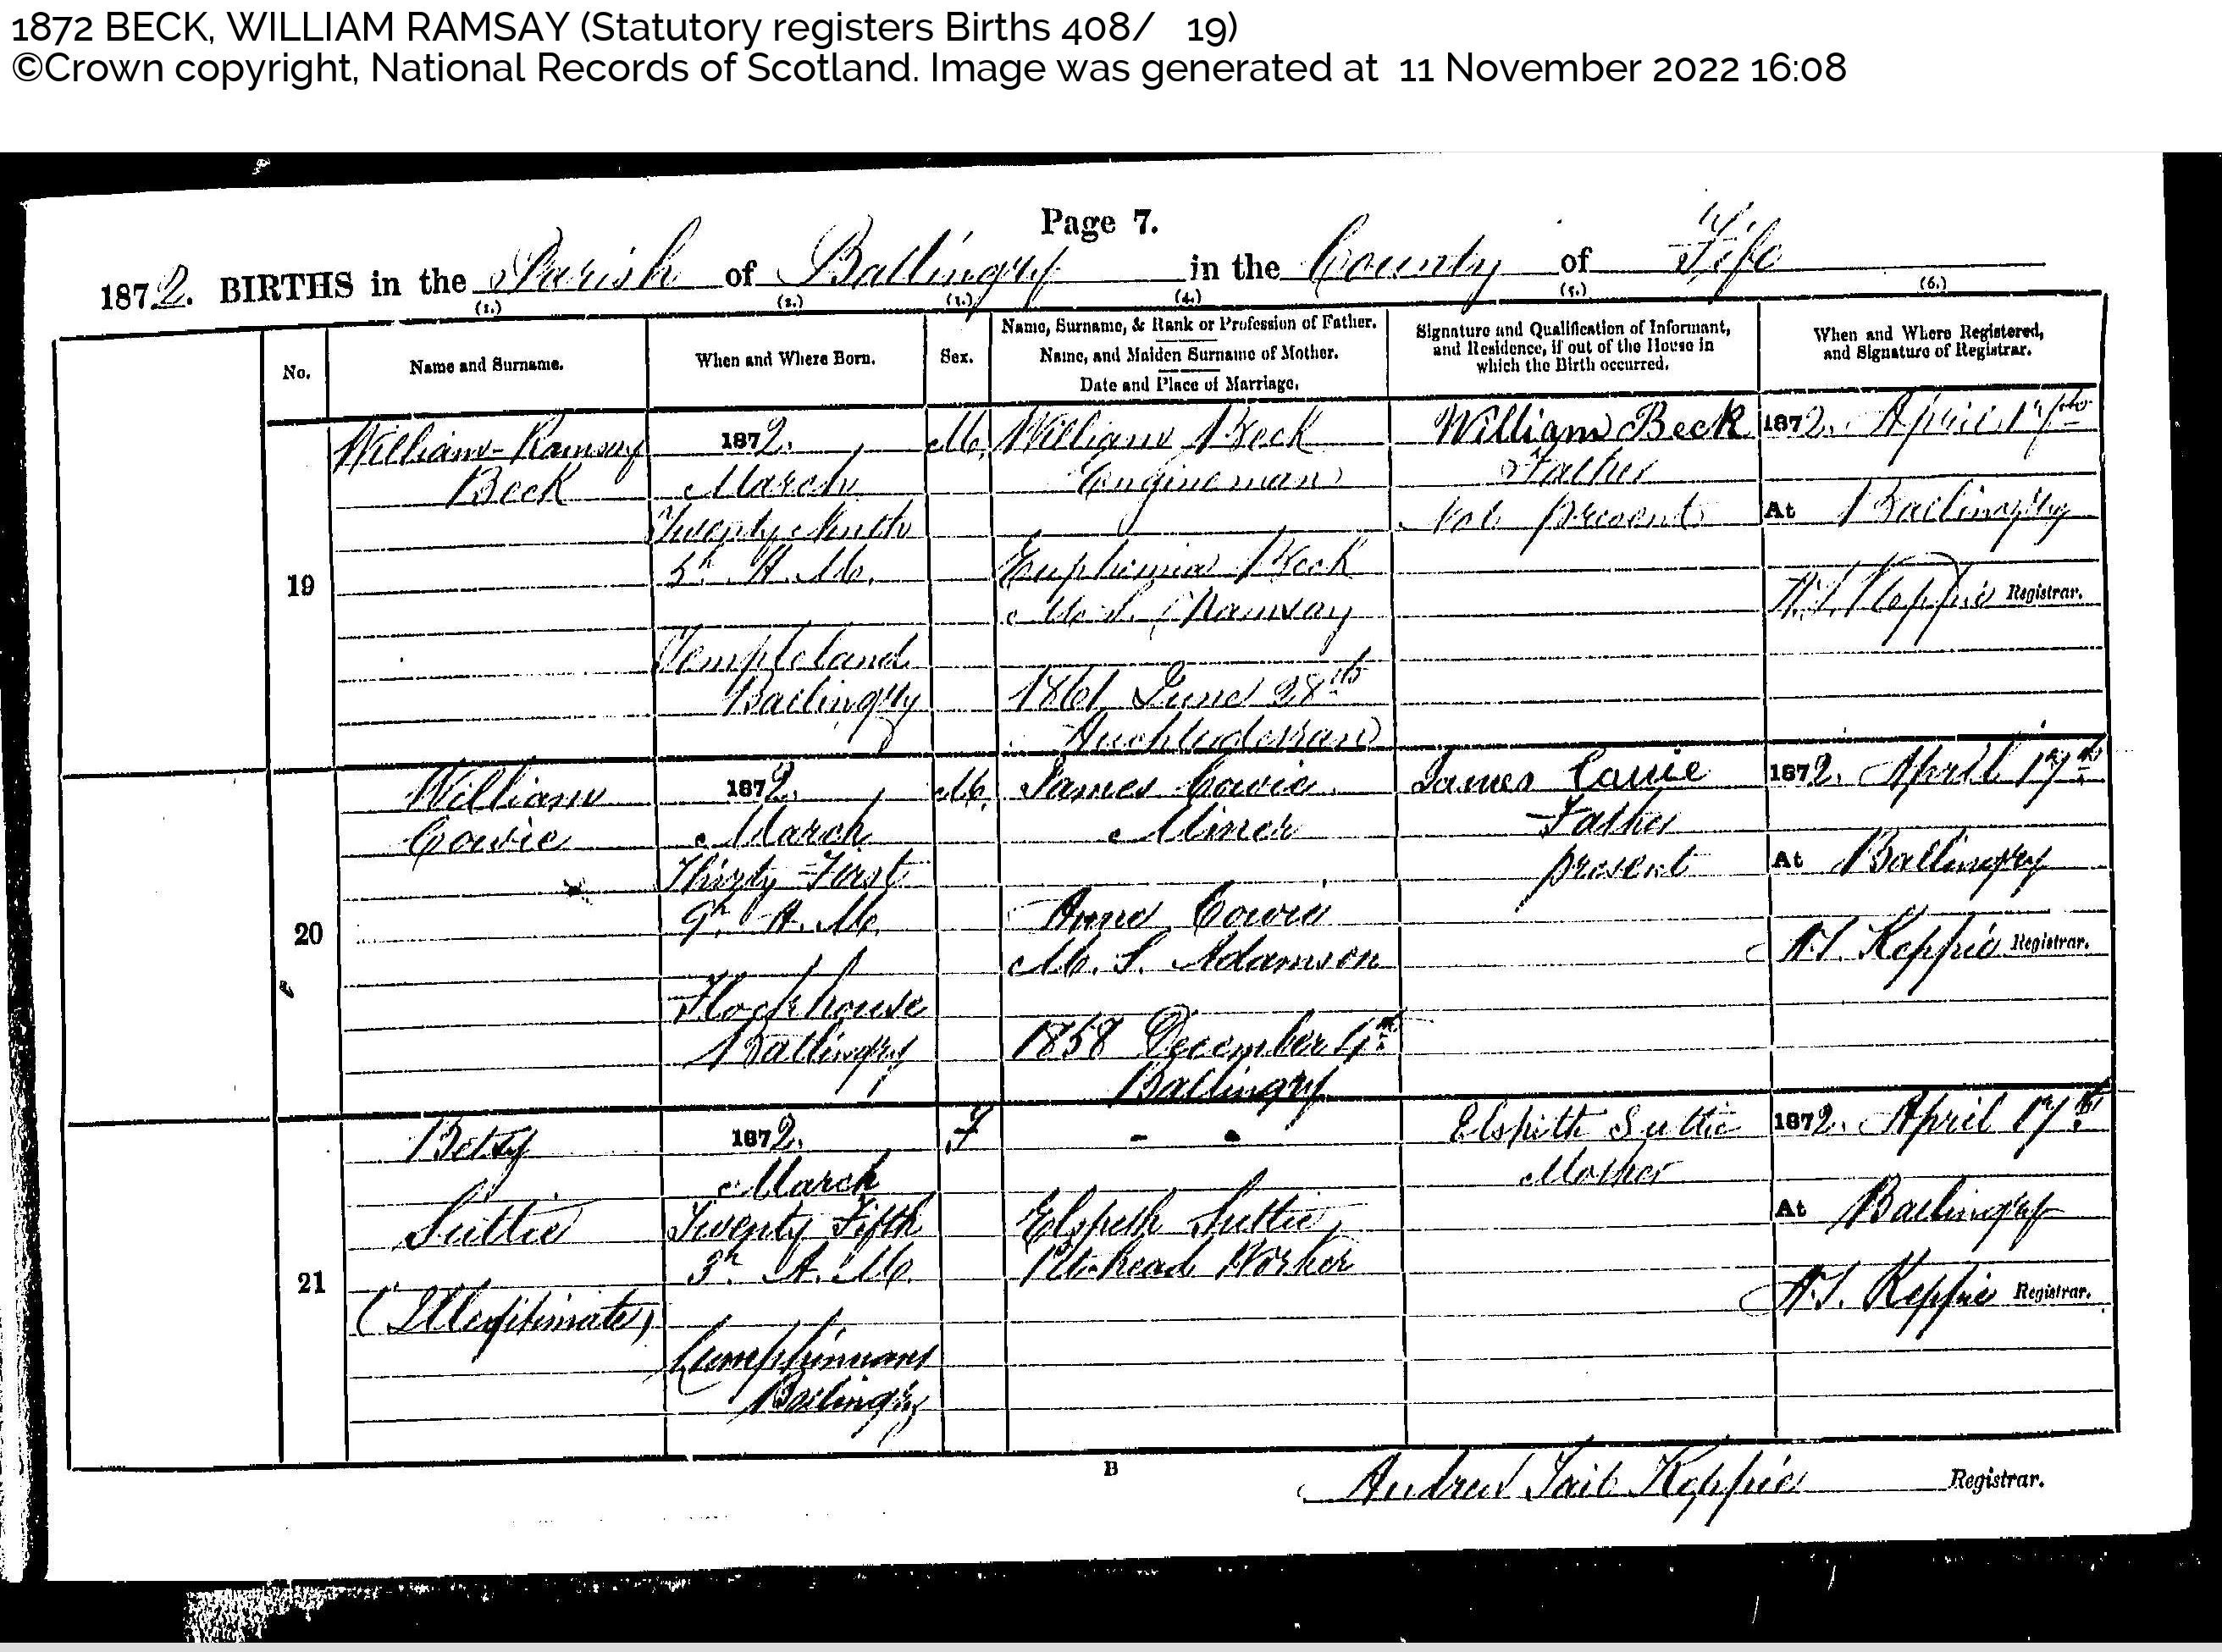 1872 BECK, WILLIAM RAMSAY (Statutory registers Births 408/ 19)
©Crown copyright, National Records of Scotland. Image was generated at 11 November 2022 16:08
Page 7.
1872. BIRTHS in the Parish of Ballingry in the County of Fife
(1.) (2.) (3.) (4.) (5.) (6.)
No.
Name and Surname.
When and Where Born.
Sex.
Name, Surname, & Rank or Profession of Father.
Name, and Maiden Surname of Mother.
Date and Place of Marriage.
Signature and Qualification of Informant,
and Residence, if out of the House in
which the Birth occurred.
When and Where Registered,
and Signature of Registrar.
19
William Ramsay
Beck
1872.
March
Twenty Ninth
5h A. M.
Templeland
Ballingry
M.
William Beck
Engineman
Euphemia Beck
M. S. Ramsay
1861 June 28th
Auchterderran
William Beck
Father
not present
1872. April 17th
At Ballingry
A. T. Keppie Registrar.
20
William
Cowie
1872.
March
Thirty First
9h A. M.
Flockhouse
Ballingry
M.
James Cowie
Miner
Anne Cowie
M. S. Adamson
1858 December
Ballingry
James Cowie
Father
present
1872. April 17th
At Ballingry
A. T. Keppie Registrar.
21
Betsy
Suttie
(Illegitimate)
1872.
March
Twenty Fifth
3h A. M.
Lumphinnans
Ballingry
F
- -
Elspeth Suttie
Pit-head Worker
Elspeth Suttie
Mother
1872. April 17th
At Ballingry
A. T. Keppie Registrar.
B
Andrew Tait Keppie Registrar.